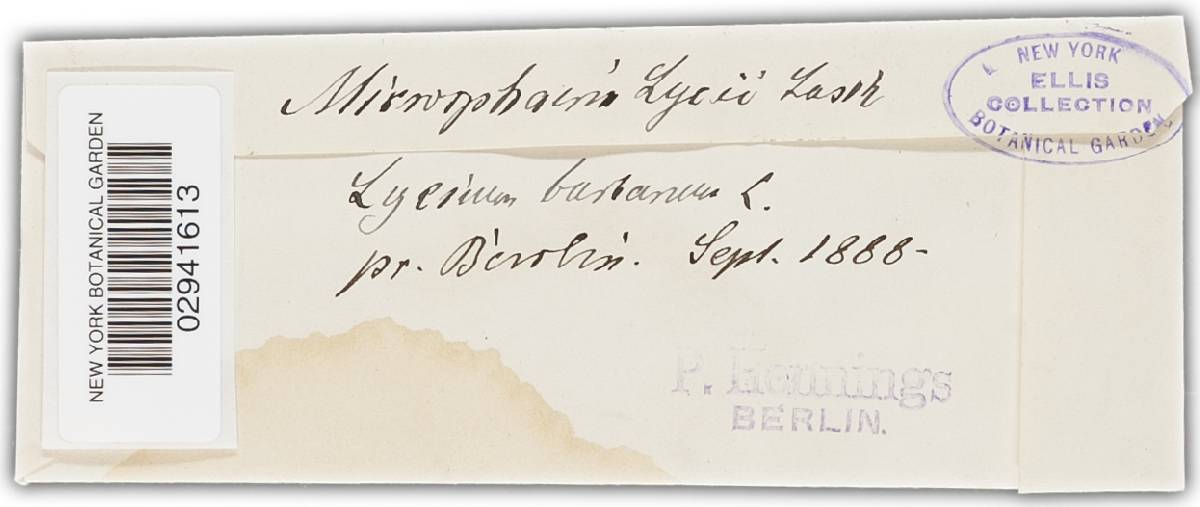 Microsphaeria Lycii Lasch
NEW YORK
ELLIS
COLLECTION
BOTANICAL GARDEN
Lycium barbarum L.
pr. Berolin. Sept. 1888-
P. Hennings
BERLIN.
NEW YORK BOTANICAL GARDEN
02941613